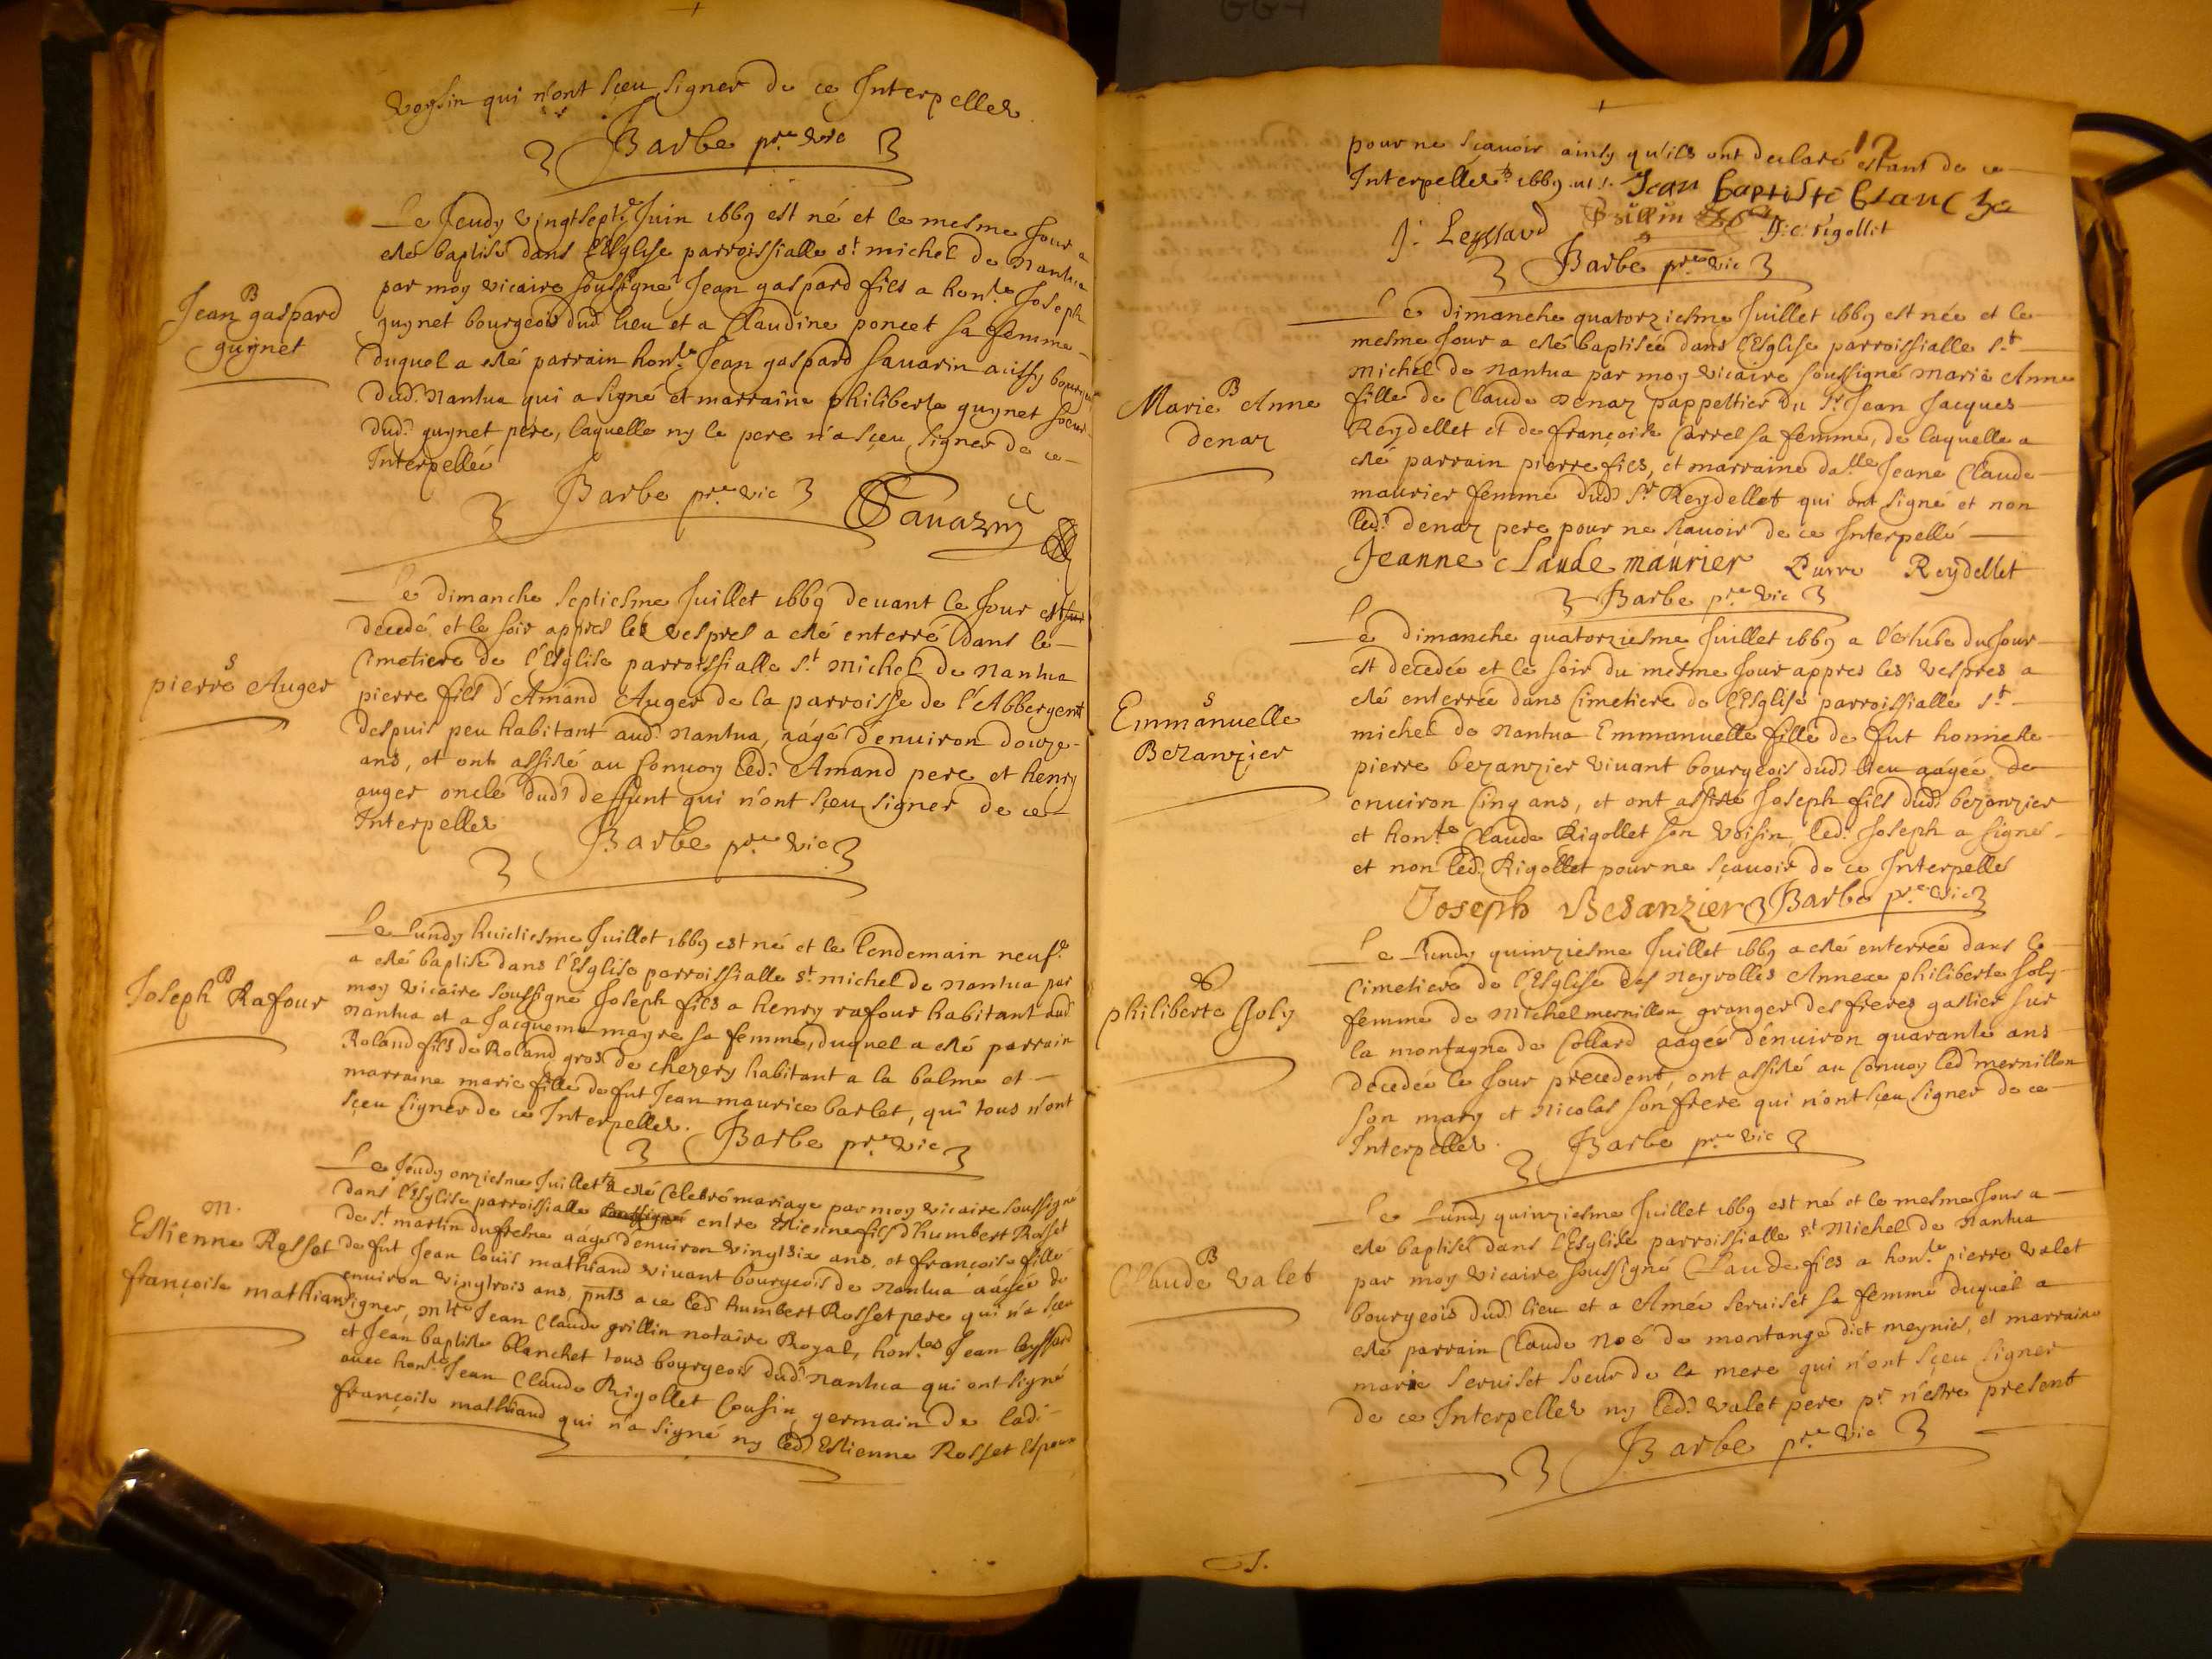 voysin qui n'ont sçeu signer de ce Interpelles
Barbe pre vic
Jean gaspard guynet
B
Le Jeudy vingtsept.e Juin 1669 est né et le mesme Jour a
esté baptisé dans l'Esglise parroissialle st michel de Nantua
par moy vicaire soussigné Jean gaspard fils a hon.le Joseph
guynet bourgeois dud. lieu et a Claudine poncet sa femme
duquel a esté parrain hon.le Jean gaspard sauarin aussy bourgeois
dud. Nantua qui a signé et marraine philiberte guynet soeur
dud. guynet pere, laquelle ny le pere n'a sçeu signer de ce
Interpellé
Barbe pre vic Sauarin
pierre Auger
S
Le dimanche septiesme Juillet 1669 deuant le Jour est
decedé et le soir appres les vespres a esté enterré dans le
Cimetiere de l'Esglise parroissialle S.t Michel de Nantua
pierre fils d'Amand Auger de la parroisse de l'Abbergent
despuis peu habitant aud. Nantua, aágé d'enuiron douze
ans, et ont assisté au Conuoy led. Amand pere et henry
auger oncle dud. deffunt qui n'ont sçeu signer de ce
Interpelles
Barbe pre vic
Joseph Rafour
B
Le Lundy huictiesme Juillet 1669 est né et le lendemain neuf.e
a esté baptisé dans l'Esglise parroissialle st michel de Nantua par
moy vicaire soussigné Joseph fils a henry rafour habitant aud
Nantua et a Jacquema mayre sa femme, duquel a esté parrain
Roland fils de Roland gros de chezery habitant a la balme et
marraine marie fille de fut Jean maurice barlet, qui tous n'ont
sçeu signer de ce Interpelles.
Barbe pre vic
m.
Estienne Rosset
françoise mathiand
Le Jeudy onziesme Juillet a esté Celebré mariage par moy vicaire soussigné
dans l'Esglise parroissialle entre Estienne fils d'humbert Rosset
de st martin dufresne aágé d'enuiron vingtsix ans, et françoise fille
de fut Jean louis mathiand viuant bourgeois de Nantua aágée de
enuiron vingtrois ans, pnts a ce led humbert Rosset pere qui n'a sçeu
signer, mtre Jean Claude grillin notaire Royal, hon.les Jean leyssard
et Jean baptiste blanchet tous bourgeois dud. Nantua qui ont signé
auec hon.le Jean Claude Rigollet Cousin germain de ladi
françoise mathiand qui n'a signé ny led. Estienne Rosset Espoux
12
pour ne sçauoir ainsy qu'ils ont declaré estant de ce
Interpelles 1669
Jean baptiste blanchet
J. Leyssard Grillin J: C: rigollet
Barbe pre vic
Marie Anne denaz
B
Le dimanche quatorziesme Juillet 1669 est née et le
mesme Jour a esté baptisée dans l'Esglise parroissialle S.t
Michel de Nantua par moy vicaire soussigné marie Anne
fille de Claude Denaz pappettier du Sr Jean Jacques
Reydellet et de françoise Carrel sa femme, de laquelle a
esté parrain pierre fils, et marraine da.lle Jeane Claude
maurier femme dud. Sr Reydellet qui ont signé et non
led. denaz pere pour ne scauoir de ce Interpellé
Jeanne claude maurier Pierre Reydellet
Barbe pre vic
Emmanuelle Bezanzier
S
Le dimanche quatorziesme Juillet 1669 a l'estube du Jour
est decedée et le soir du mesme Jour appres les vespres a
esté enterrée dans Cimetiere de l'Esglise parroissialle S.t
michel de Nantua Emmanuelle fille de fut honneste
pierre bezanzier viuant bourgeois dud. lieu aágée de
enuiron Cinq ans, et ont assisté Joseph fils dud. bezanzier
et hon.le Claude Rigollet son voisin, led. Joseph a signé
et non led. Rigollet pour ne sçauoir de ce Interpellé
Joseph Besanzier Barbe pre vic
philiberte Joly
S
Le Lundy quinziesme Juillet 1669 a esté enterrée dans le
Cimetiere de l'Esglise des Neyrolles Annexe philiberte Joly
femme de Michel mermillon granger des freres gallier sur
la montagne de Collard aagée d'enuiron quarante ans
decedée le Jour precedent, ont assisté au Conuoy led mermillon
son mary et Nicolas son frere qui n'ont sçeu signer de ce
Interpelles.
Barbe pre vic
Claude Valet
B
Le Lundy quinziesme Juillet 1669 est né et le mesme Jour a
esté baptisé dans l'Esglise parroissialle st Michel de Nantua
par moy vicaire soussigné Claude fils a hon.le pierre valet
bourgeois dud. lieu et a Amée seruiset sa femme duquel a
esté parrain Claude Noé de montange dict meynier, et marraine
marie seruiset soeur de la mere qui n'ont sçeu signer
de ce Interpelles ny led. valet pere pr n'estre present
Barbe pre vic